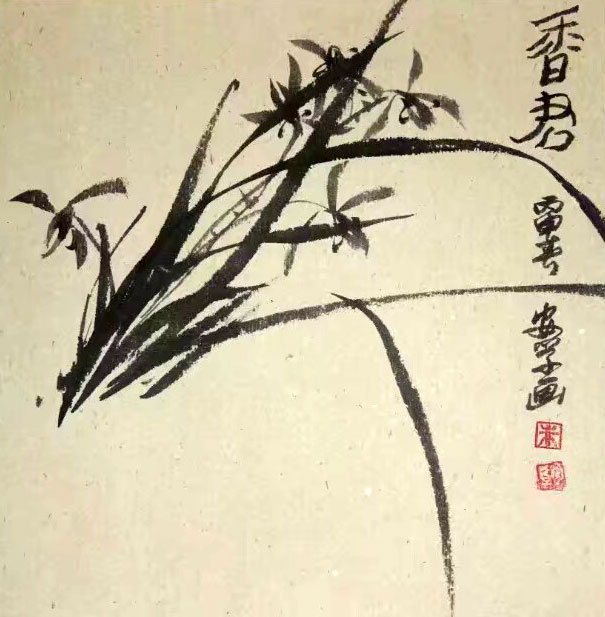 香君
留春
安学画